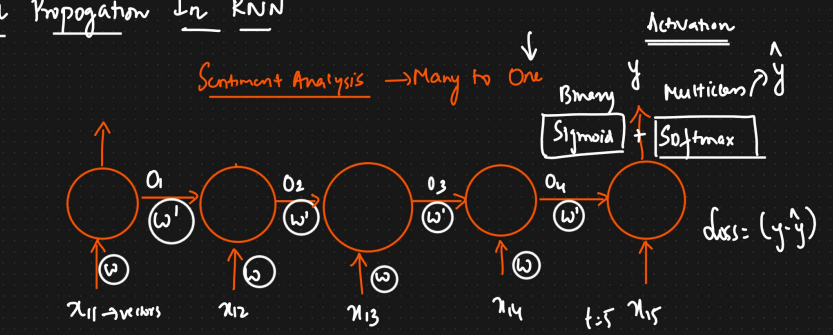 Propogation In RNN
Activation
Sentiment Analysis → Many to One
y
ŷ
Binary
Multiclass
Sigmoid + Softmax
O₁
O₂
O₃
O₄
W'
W'
W'
W'
loss = (y-ŷ)
W
W
W
W
x₁₁ → vectors
x₁₂
x₁₃
x₁₄
t=5
x₁₅